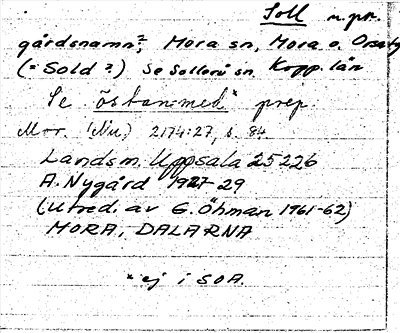 Soll n. pr.
gårdsnamn?, Mora sn, Mora o. Orsa
(= Sold?) Se Sollerö sn Kopp. län
Se östanmed* prep.
Mor. (Nu.) 2174:27, s. 84
Landsm. Uppsala 25226
A. Nygård 1927-29
(Utred. av G. Öhman 1961-62)
MORA, DALARNA
* ej i SOA.